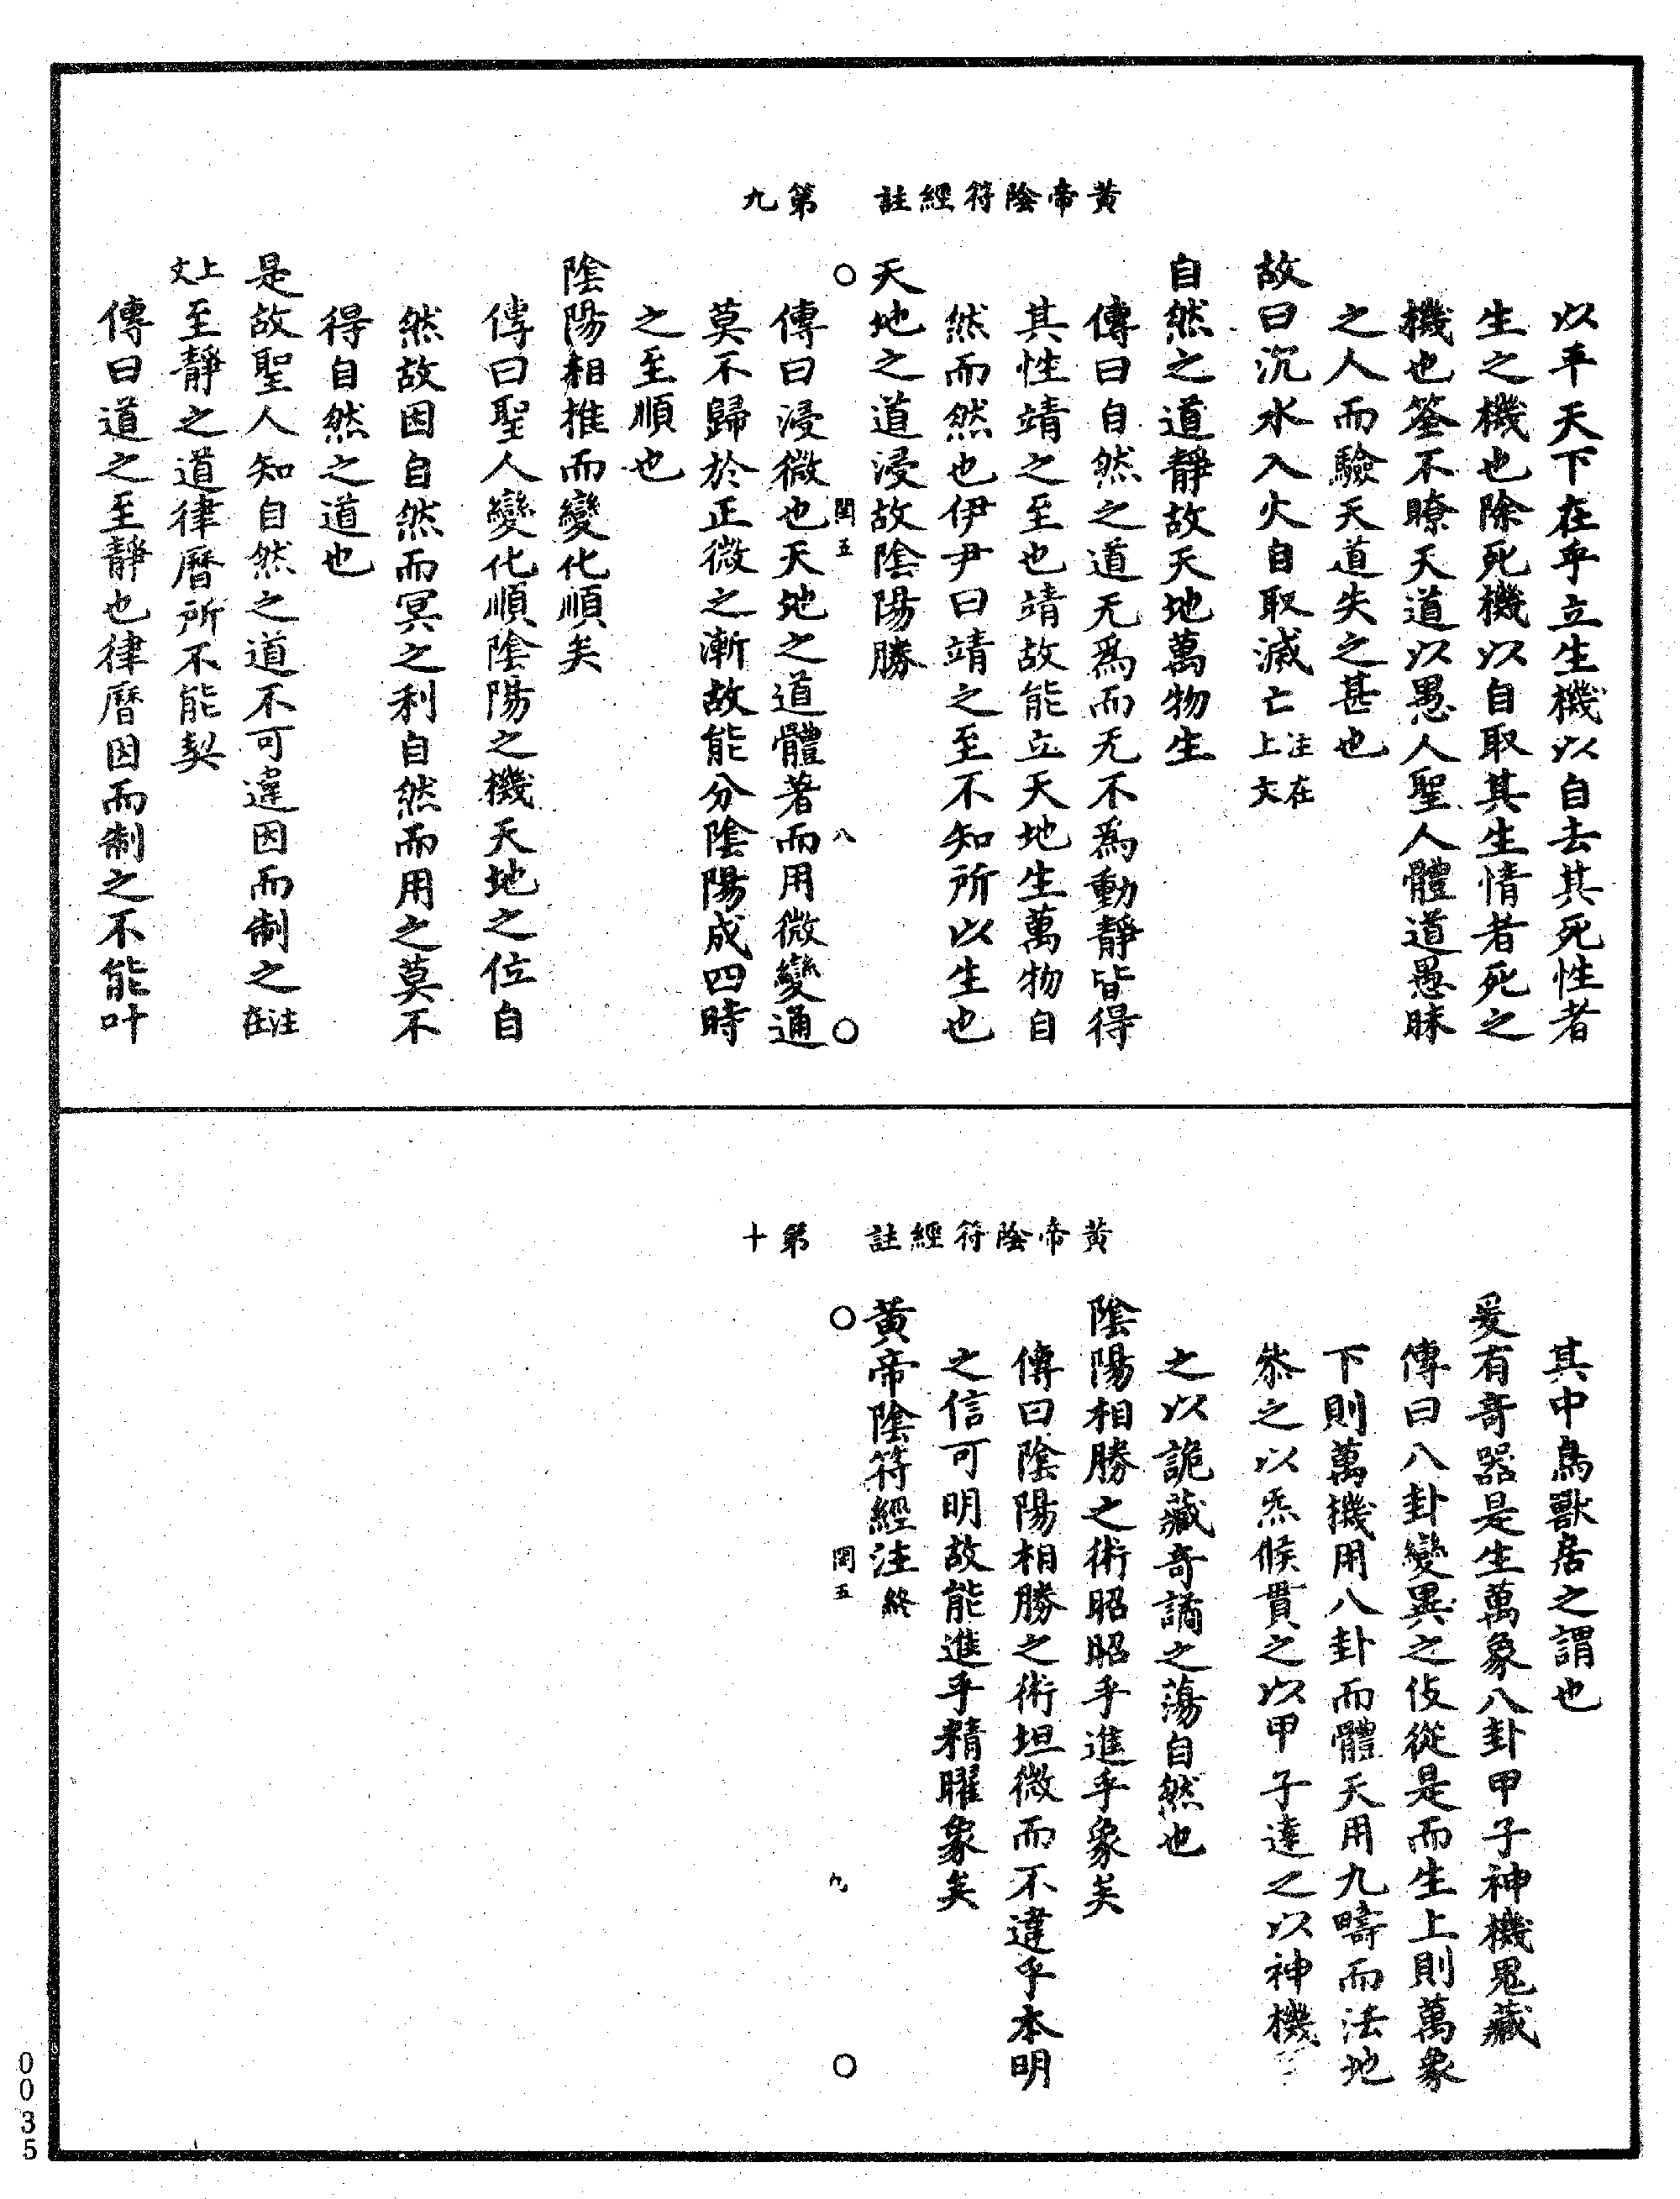 黃帝陰符經註　第九
以平天下在乎立生機以自去其死性者
生之機也除死機以自取其生情者死之
機也筌不瞭天道以愚人聖人體道愚昧
之人而驗天道失之甚也
故曰沉水入火自取滅亡注在上文
自然之道靜故天地萬物生
傳曰自然之道无爲而无不爲動靜皆得
其性靖之至也靖故能立天地生萬物自
然而然也伊尹曰靖之至不知所以生也
天地之道浸故陰陽勝
閏五　八
傳曰浸微也天地之道體著而用微變通
莫不歸於正微之漸故能分陰陽成四時
之至順也
陰陽相推而變化順矣
傳曰聖人變化順陰陽之機天地之位自
然故因自然而冥之利自然而用之莫不
得自然之道也
是故聖人知自然之道不可違因而制之注在
上文至靜之道律曆所不能契
傳曰道之至靜也律曆因而制之不能叶
黃帝陰符經註　第十
其中鳥獸居之謂也
爰有奇器是生萬象八卦甲子神機鬼藏
傳曰八卦變異之伎從是而生上則萬象
下則萬機用八卦而體天用九疇而法地
叅之以炁候貫之以甲子達之以神機
之以詭藏奇譎之蕩自然也
陰陽相勝之術昭昭乎進乎象矣
傳曰陰陽相勝之術坦微而不違乎本明
之信可明故能進乎精曜象矣
黃帝陰符經注終
閏五　九
0035